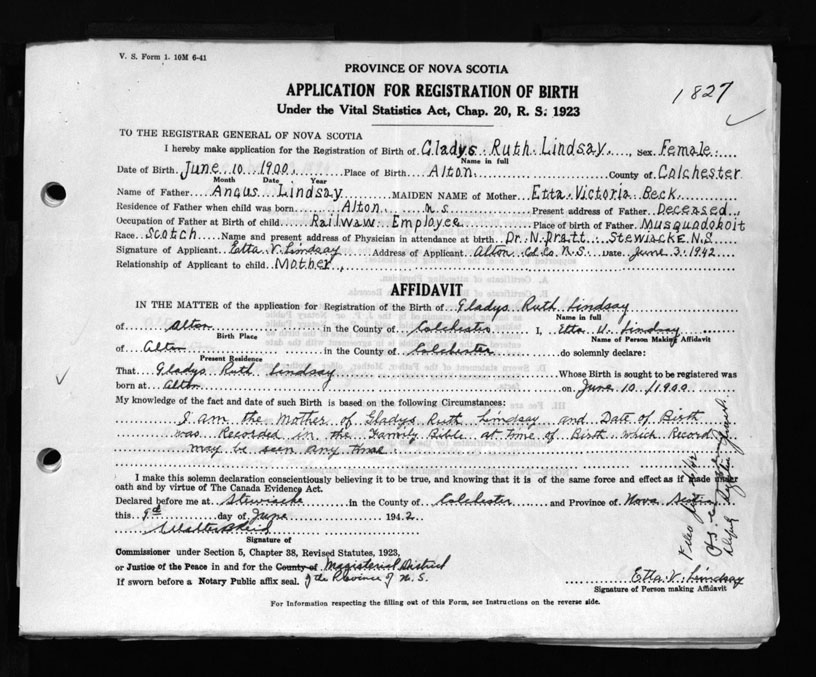 V. S. Form 1. 10M 6-41
PROVINCE OF NOVA SCOTIA
APPLICATION FOR REGISTRATION OF BIRTH
Under the Vital Statistics Act, Chap. 20, R. S. 1923
1827
TO THE REGISTRAR GENERAL OF NOVA SCOTIA
I hereby make application for the Registration of Birth of Gladys Ruth Lindsay Sex Female
Name in full
Date of Birth June 10 1900 Place of Birth Alton County of Colchester
Month Date Year
Name of Father Angus Lindsay MAIDEN NAME of Mother Etta Victoria Beck
Residence of Father when child was born Alton N.S. Present address of Father Deceased
Occupation of Father at Birth of child Railway Employee Place of birth of Father Musquodoboit
Race Scotch Name and present address of Physician in attendance at birth Dr. N. Pratt Stewiacke N.S.
Signature of Applicant Etta V. Lindsay Address of Applicant Alton Col. Co. N.S. Date June 3 1942
Relationship of Applicant to child Mother
AFFIDAVIT
IN THE MATTER of the application for Registration of the Birth of Gladys Ruth Lindsay
Name in full
of Alton in the County of Colchester I, Etta V. Lindsay
Birth Place Name of Person Making Affidavit
of Alton in the County of Colchester do solemnly declare:
Present Residence
That Gladys Ruth Lindsay Whose Birth is sought to be registered was
born at Alton on June 10 / 1900
My knowledge of the fact and date of such Birth is based on the following Circumstances:
I am the Mother of Gladys Ruth Lindsay and Date of Birth
was Recorded in the Family Bible at time of Birth which Record
may be seen any time
I make this solemn declaration conscientiously believing it to be true, and knowing that it is of the same force and effect as if made under
oath and by virtue of The Canada Evidence Act.
Declared before me at Stewiacke in the County of Colchester and Province of Nova Scotia
this 9th day of June 1942
Signature of
Commissioner under Section 5, Chapter 38, Revised Statutes, 1923,
or Justice of the Peace in and for the County of Magisterial District
If sworn before a Notary Public affix seal. of the Province of N. S.
Etta V. Lindsay
Signature of Person making Affidavit
For Information respecting the filling out of this Form, see Instructions on the reverse side.